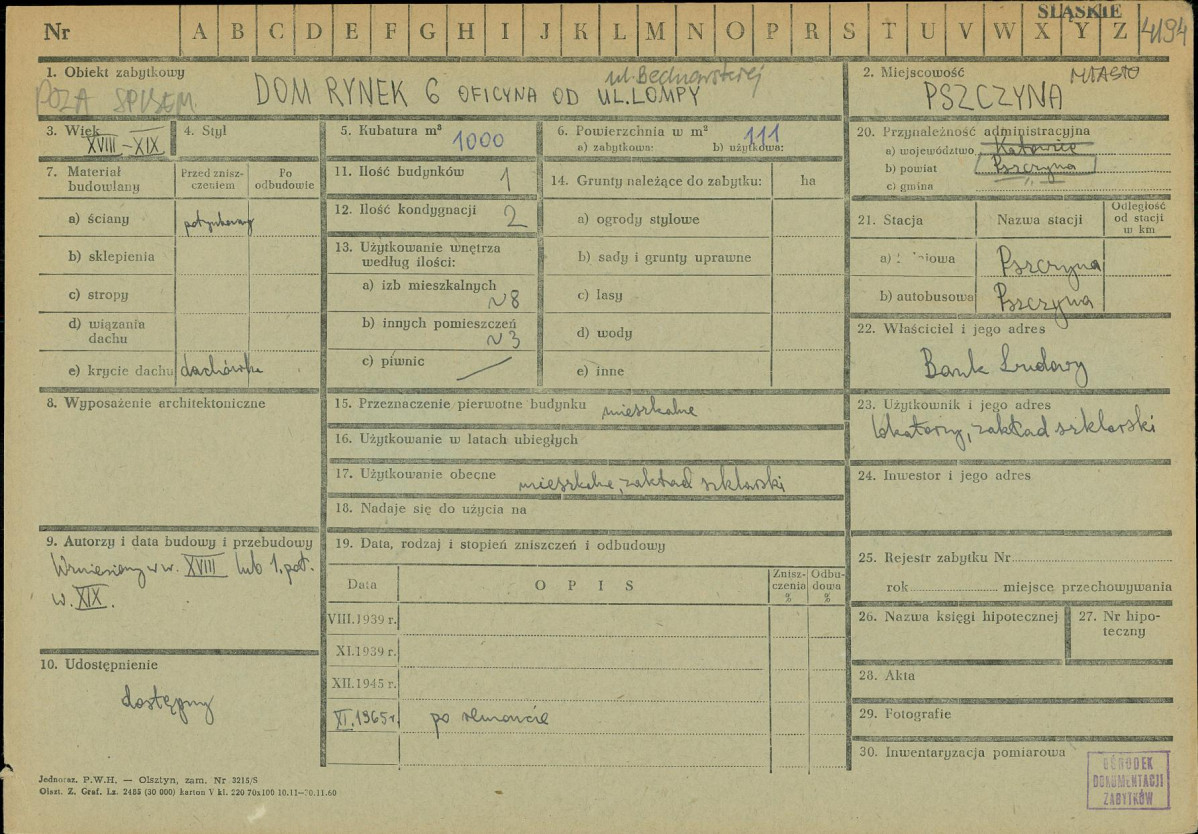 ŚLĄSKIE
Nr A B C D E F G H I J K L M N O P R S T U V W X Y Z 4194
1. Obiekt zabytkowy
POZA SPISEM
ul. Bednarskiej
DOM RYNEK 6 OFICYNA OD UL. LOMPY
2. Miejscowość MIASTO
PSZCZYNA
3. Wiek
XVIII-XIX
4. Styl
5. Kubatura m³
1000
6. Powierzchnia w m² 111
a) zabytkowa: b) użytkowa:
20. Przynależność administracyjna
a) województwo Katowice
b) powiat Pszczyna
c) gmina
7. Materiał budowlany
Przed znisz-
czeniem
Po
odbudowie
a) ściany
b) sklepienia
c) stropy
d) wiązania
dachu
e) krycie dachu dachówka
11. Ilość budynków 1
12. Ilość kondygnacji 2
13. Użytkowanie wnętrza
według ilości:
a) izb mieszkalnych
~8
b) innych pomieszczeń
~3
c) piwnic —
14. Grunty należące do zabytku: ha
a) ogrody stylowe
b) sady i grunty uprawne
c) lasy
d) wody
e) inne
21. Stacja Nazwa stacji
Odległość
od stacji
w km
a) Pszczyna
b) autobusowa Pszczyna
22. Właściciel i jego adres
Bank Ludowy
8. Wyposażenie architektoniczne
15. Przeznaczenie pierwotne budynku mieszkalne
16. Użytkowanie w latach ubiegłych
17. Użytkowanie obecne mieszkalne, zakład szklarski
18. Nadaje się do użycia na
23. Użytkownik i jego adres
lokatorzy, zakład szklarski
24. Inwestor i jego adres
9. Autorzy i data budowy i przebudowy
Wzniesiony w w. XVIII lub 1. poł.
w. XIX.
10. Udostępnienie
dostępny
19. Data, rodzaj i stopień zniszczeń i odbudowy
Data OPIS
Znisz-
czenia
%
Odbu-
dowa
%
VIII.1939 r.
XI.1939 r.
XII.1945 r.
XI.1965 r. po remoncie
25. Rejestr zabytku Nr
rok miejsce przechowywania
26. Nazwa księgi hipotecznej
27. Nr hipo-
teczny
28. Akta
29. Fotografie
30. Inwentaryzacja pomiarowa
OŚRODEK
DOKUMENTACJI
ZABYTKÓW
Jednoraz. P.W.H. — Olsztyn, zam. Nr 3215/S